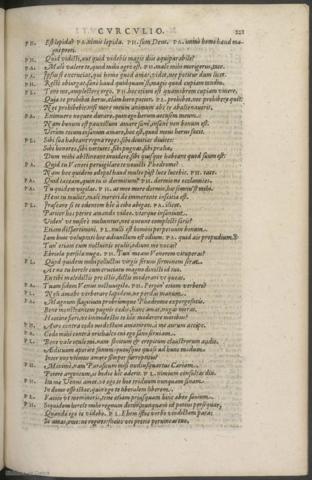 CVRCVLIO. 221
PH. Est lepida? PA. nimis lepida. PH. sum Deus. PA. immo homo haud magni preti.
PH. Quid vidisti, aut quid videbis magis diis aequiparabile?
PA. Male valere te, quod mihi aegre est. PH. male mihi morigerus, tace.
PA. Ipsus se excruciat, qui homo quod amat videt, nec potitur dum licet.
PH. Recte obiurgat: sane haud quicquam'st, magis quod cupiam
PL. Tene me, amplectere ergo. PH. hoc etiam est quamobrem cupiam vivere.
Quia te prohibet herus, clam hero potior. PL. prohibet, nec prohibere quit:
Nec prohibebit: nisi mors meum animum abs te abalienaverit.
PA. Enimvero nequeo durare, quin ego herum accusem meum:
Nam bonum est pauxillum amare sane, insane non bonum est:
Verum totum insanum amare, hoc est, quod meus herus facit.
PH. Sibi sua habeant regna reges, sibi divitias divites:
Sibi honores, sibi virtutes, sibi pugnas, sibi praelia,
Dum mihi abstineant invidere, sibi quisque habeant quod suum est:
PA. Quid tu? Veneri pervigilare te vovisti Phaedrome?
Nam hoc quidem aedepol haud multo post luce lucebit. PH. tace.
PA. Quid taceam, quin tu is dormitum? PH. dormio: ne occlamites.
PA. Tu quidem vigilas. PH. at meo more dormio, hic somnus'st mihi.
PA. Heus tu mulier, male mereri de immerente inscitia est.
PL. Irascare si te edentem hic à cibo abigat. PA. ilicet.
Pariter hos perire amando video. uterque insaniunt.
Viden' ut misere moliuntur, nec queunt complecti satis?
Etiam dispartimini. PL. nulli est homini perpetuum bonum.
Iam huic voluptati hoc adiunctum est odium. PA. quid ais propudium?
Tun' etiam cum noctuinis oculis, odium me vocas?
Ebriola persolla nugae. PH. Tun meam Venerem vituperas?
PA. Quod quidem mihi polluctus virgis servus sermonem serat.
At ne tu hercle cum cruciatu magno dixisti id tuo.
Em tibi maledictis pro istis, dictis moderari ut queas.
PA. Tuam fidem Venus noctuvigila. PH. Pergin' etiam verbero?
PL. Noli amabo verberare lapidem, ne perdas manum.
PA. Magnum flagitium probrumque Phaedrome expergefacis.
Bene monstrantem pugnis caedis, hanc amas, nugas meras.
Hoccine fieri, ut immodestis te hic moderere moribus?
PH. Auro contra cedo modestum amatorem, à me aurum accipe.
PA. Cedo mihi contra orichalco cui ego sano serviam.
PL. Bene vale ocule mi, nam sonitum & crepitum claustrorum audio,
Aedituum aperire fanum: quousque quaeso ad hunc modum
Inter nos uteremur amore semper surreptitio?
PH. Minime, nam Parasitum misi nudiusquartus Cariam,
Petere argentum, is hodie hic aderit. PL. nimium consultas diu.
PH. Ita me Venus amet, ut ego te hoc triduum nunquam sinam.
In domo esse istac, quin ego te liberalem liberem.
PL. Facito ut memineris, tene etiam priusquam hinc abeo savium.
PH. Siquidem hercle mihi regnum detur, nunquam id potius persequar,
Quando ego te videbo? PL. Em istuc verbo vindictam para:
Si amas, eme: ne rogites: facito ut pretio pervincas tuo,